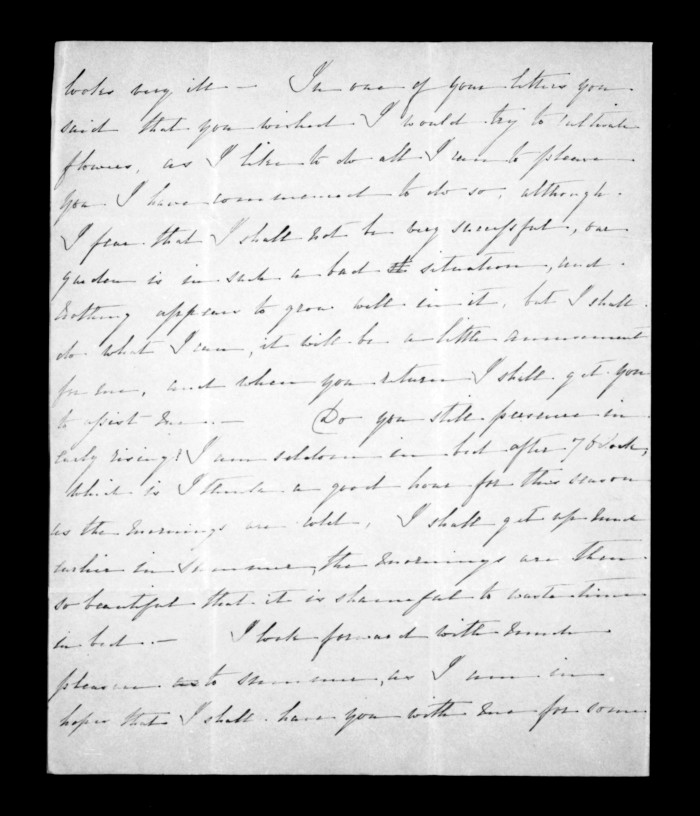 looks very ill - In one of your letters you
said that you wished I would try to cultivate
flowers, as I like to do all I can to please
you I have commenced to do so, although
I fear that I shall not be very successful, our
garden is in such a bad situation, and
nothing appears to grow well in it, but I shall
do what I can, it will be a little amusement
for me, and when you return I shall get you
to assist me. - Do you still persevere in
early rising? I am seldom in bed after 7 oClock,
which is I think a good hour for this season
as the mornings are cold, I shall get up much
earlier in summer, the mornings are then
so beautiful that it is shameful to waste time
in bed. - I look forward with much
pleasure to summer, as I am in
hopes that I shall have you with me for some